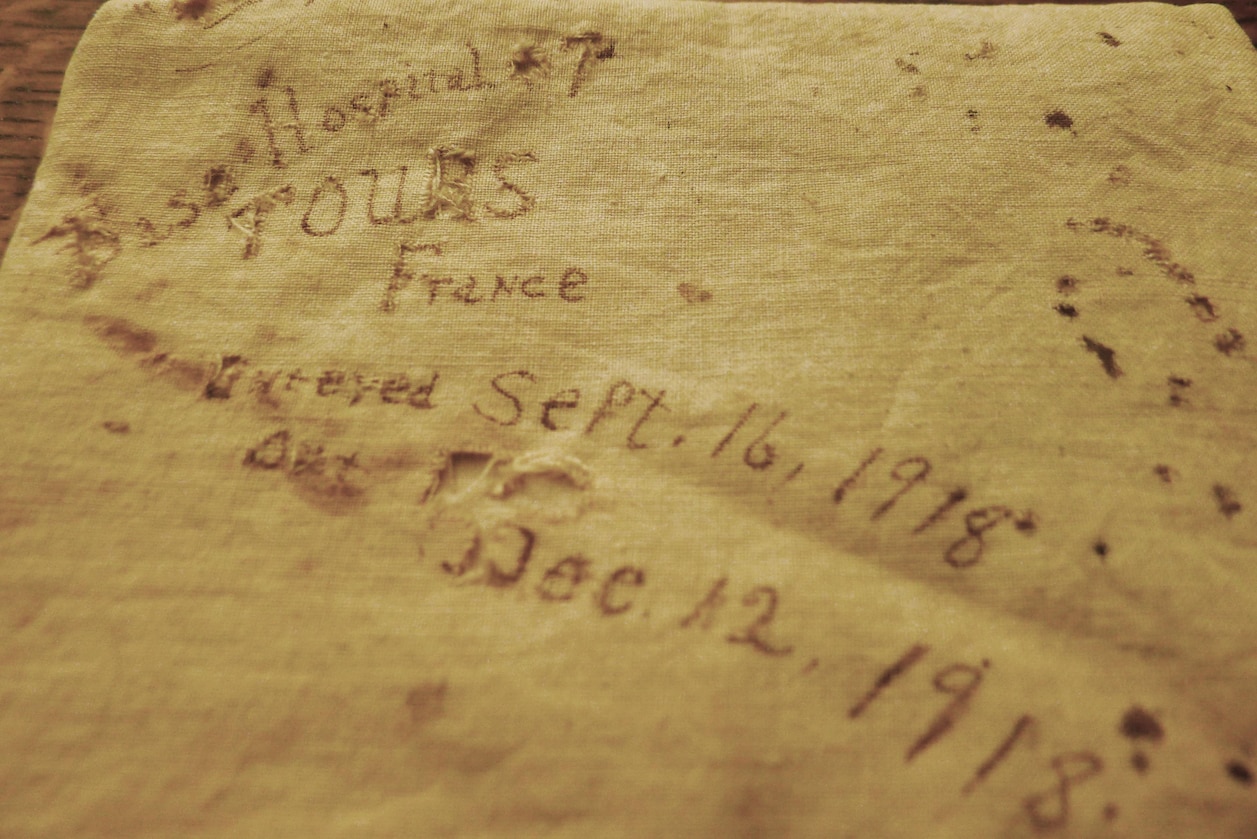 Hospital
TOURS
France
Entered Sept. 16, 1918
Out
Dec. 12, 1918.